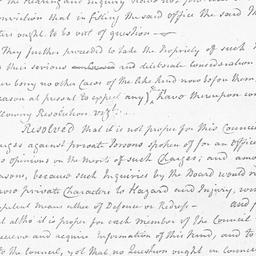 the Hearing and Inquiry
Conviction that in filling the said office the said
ters ought to be out of question
They further proceeded to take the Propriety of such
their serious and deliberate consideration
ere being no other Cases of the like kind now before them
reason at present to expect any) Have thereupon com
ollowing Resolution vizt:
Resolved that it is not proper for this Council
rges against private Persons spoken of for an office
s opinions on the merits of such Charges; and amo
asons, because such Inquiries by the Board would
hose private Characters to Hazard and Injury, with
mpetent Means either of Defence or Redress and
t altho it is proper for each member of the Council
receive and acquire information of this kind, and to
to the Council, yet that no Question ought in